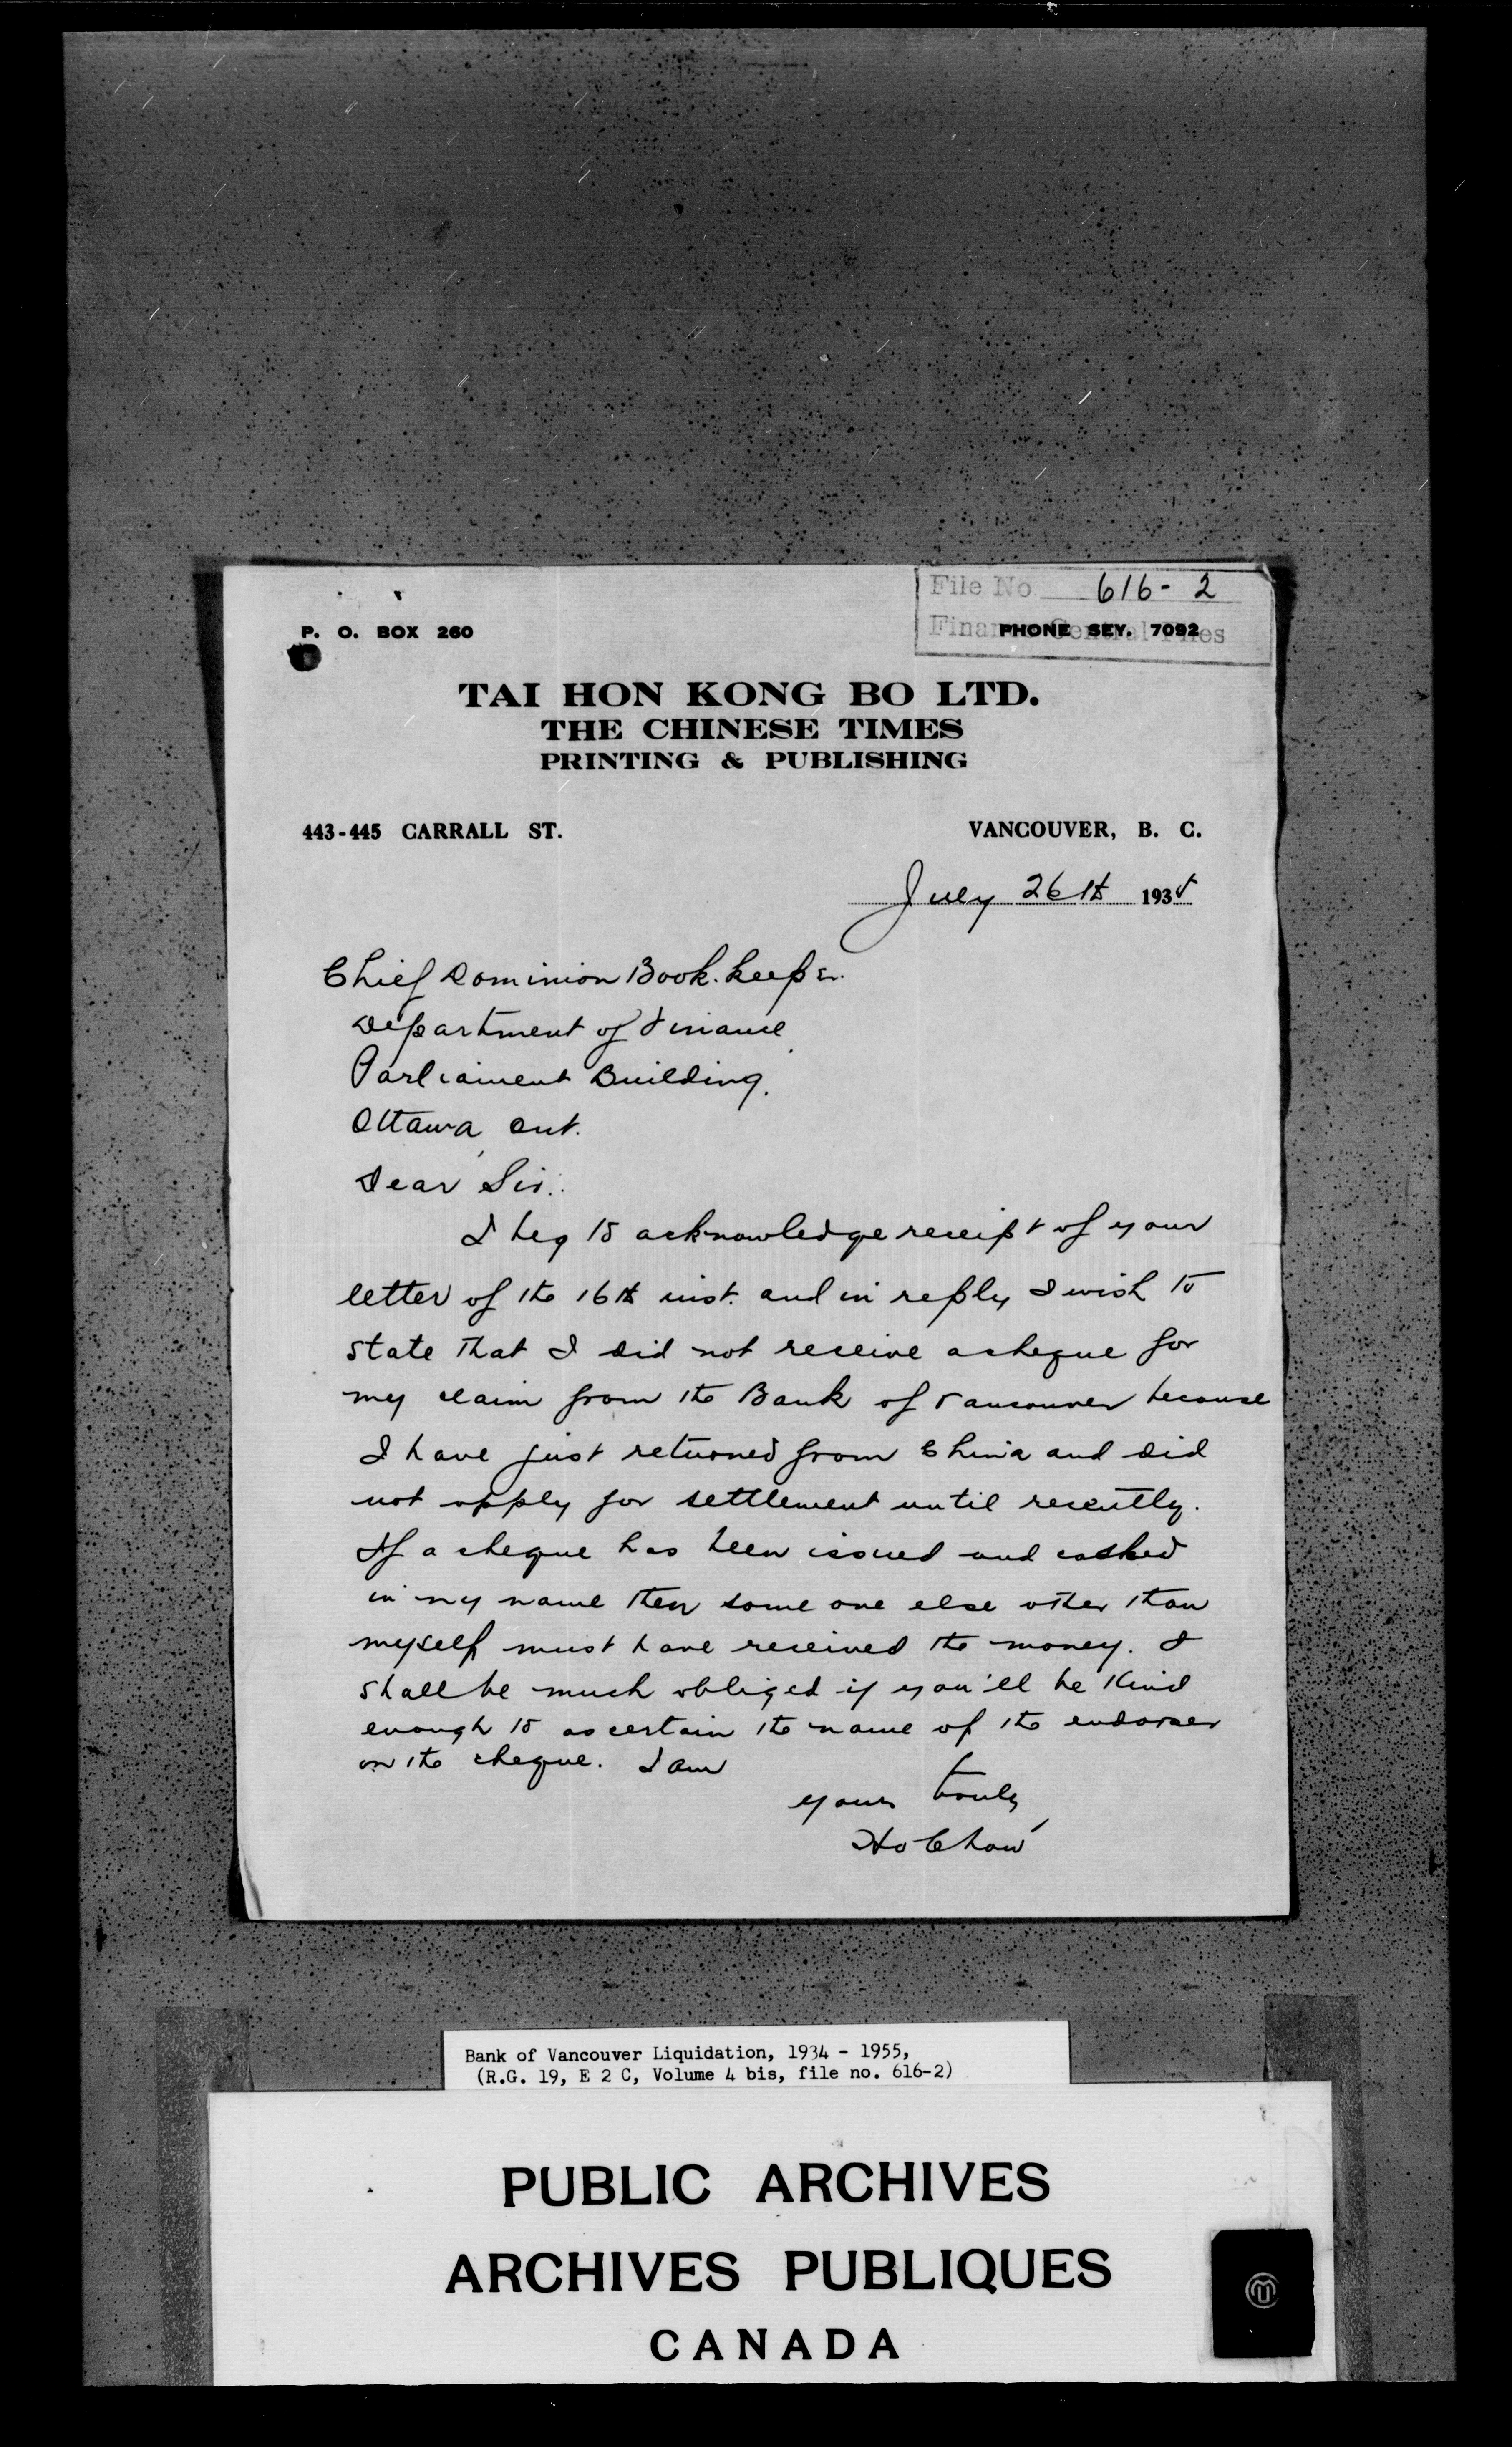 File No 616-2
Finance Central Files
P. O. BOX 260
PHONE SEY. 7092
TAI HON KONG BO LTD.
THE CHINESE TIMES
PRINTING & PUBLISHING
443-445 CARRALL ST.
VANCOUVER, B. C.
July 26th 193
Chief Dominion Book-keeper.
Department of Finance
Parliament Building.
Ottawa, Ont.
Dear Sir:
I beg to acknowledge receipt of your
letter of the 16th inst. and in reply I wish to
state that I did not receive a cheque for
my claim from the Bank of Vancouver because
I have just returned from China and did
not apply for settlement until recently.
If a cheque has been issued and cashed
in my name then some one else other than
myself must have received the money. I
shall be much obliged if you'll be kind
enough to ascertain the name of the endorser
on the cheque. I am
yours truly,
Ho Chow
Bank of Vancouver Liquidation, 1934 - 1955,
(R.G. 19, E 2 C, Volume 4 bis, file no. 616-2)
PUBLIC ARCHIVES
ARCHIVES PUBLIQUES
CANADA